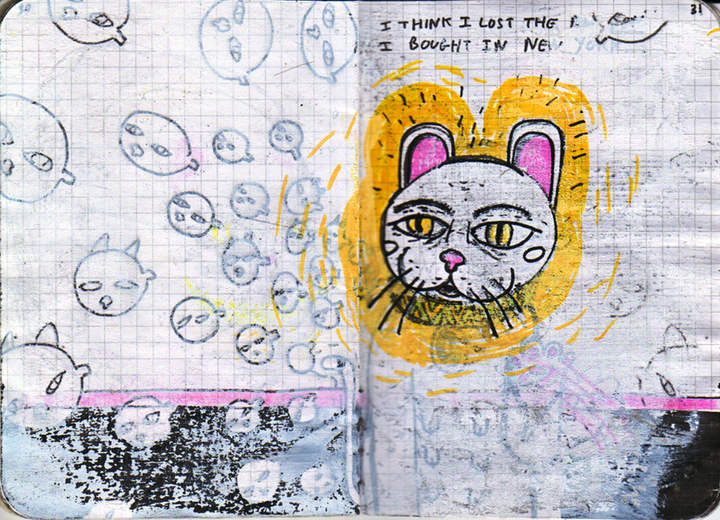 31
I THINK I LOST THE
I BOUGHT IN NEW YORK